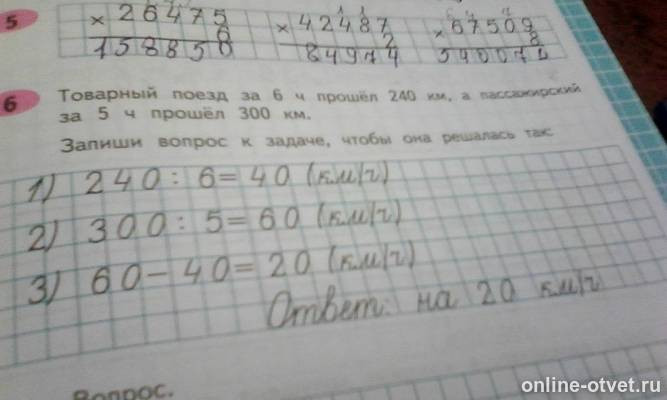 5
× 26475
6
158850
× 42487
2
84974
× 67509
8
540072
6
Товарный поезд за 6 ч прошёл 240 км, а пассажирский
за 5 ч прошёл 300 км.
Запиши вопрос к задаче, чтобы она решалась так:
1) 240 : 6 = 40 (км/ч)
2) 300 : 5 = 60 (км/ч)
3) 60 - 40 = 20 (км/ч)
Ответ: на 20 км/ч
Вопрос.
online-otvet.ru